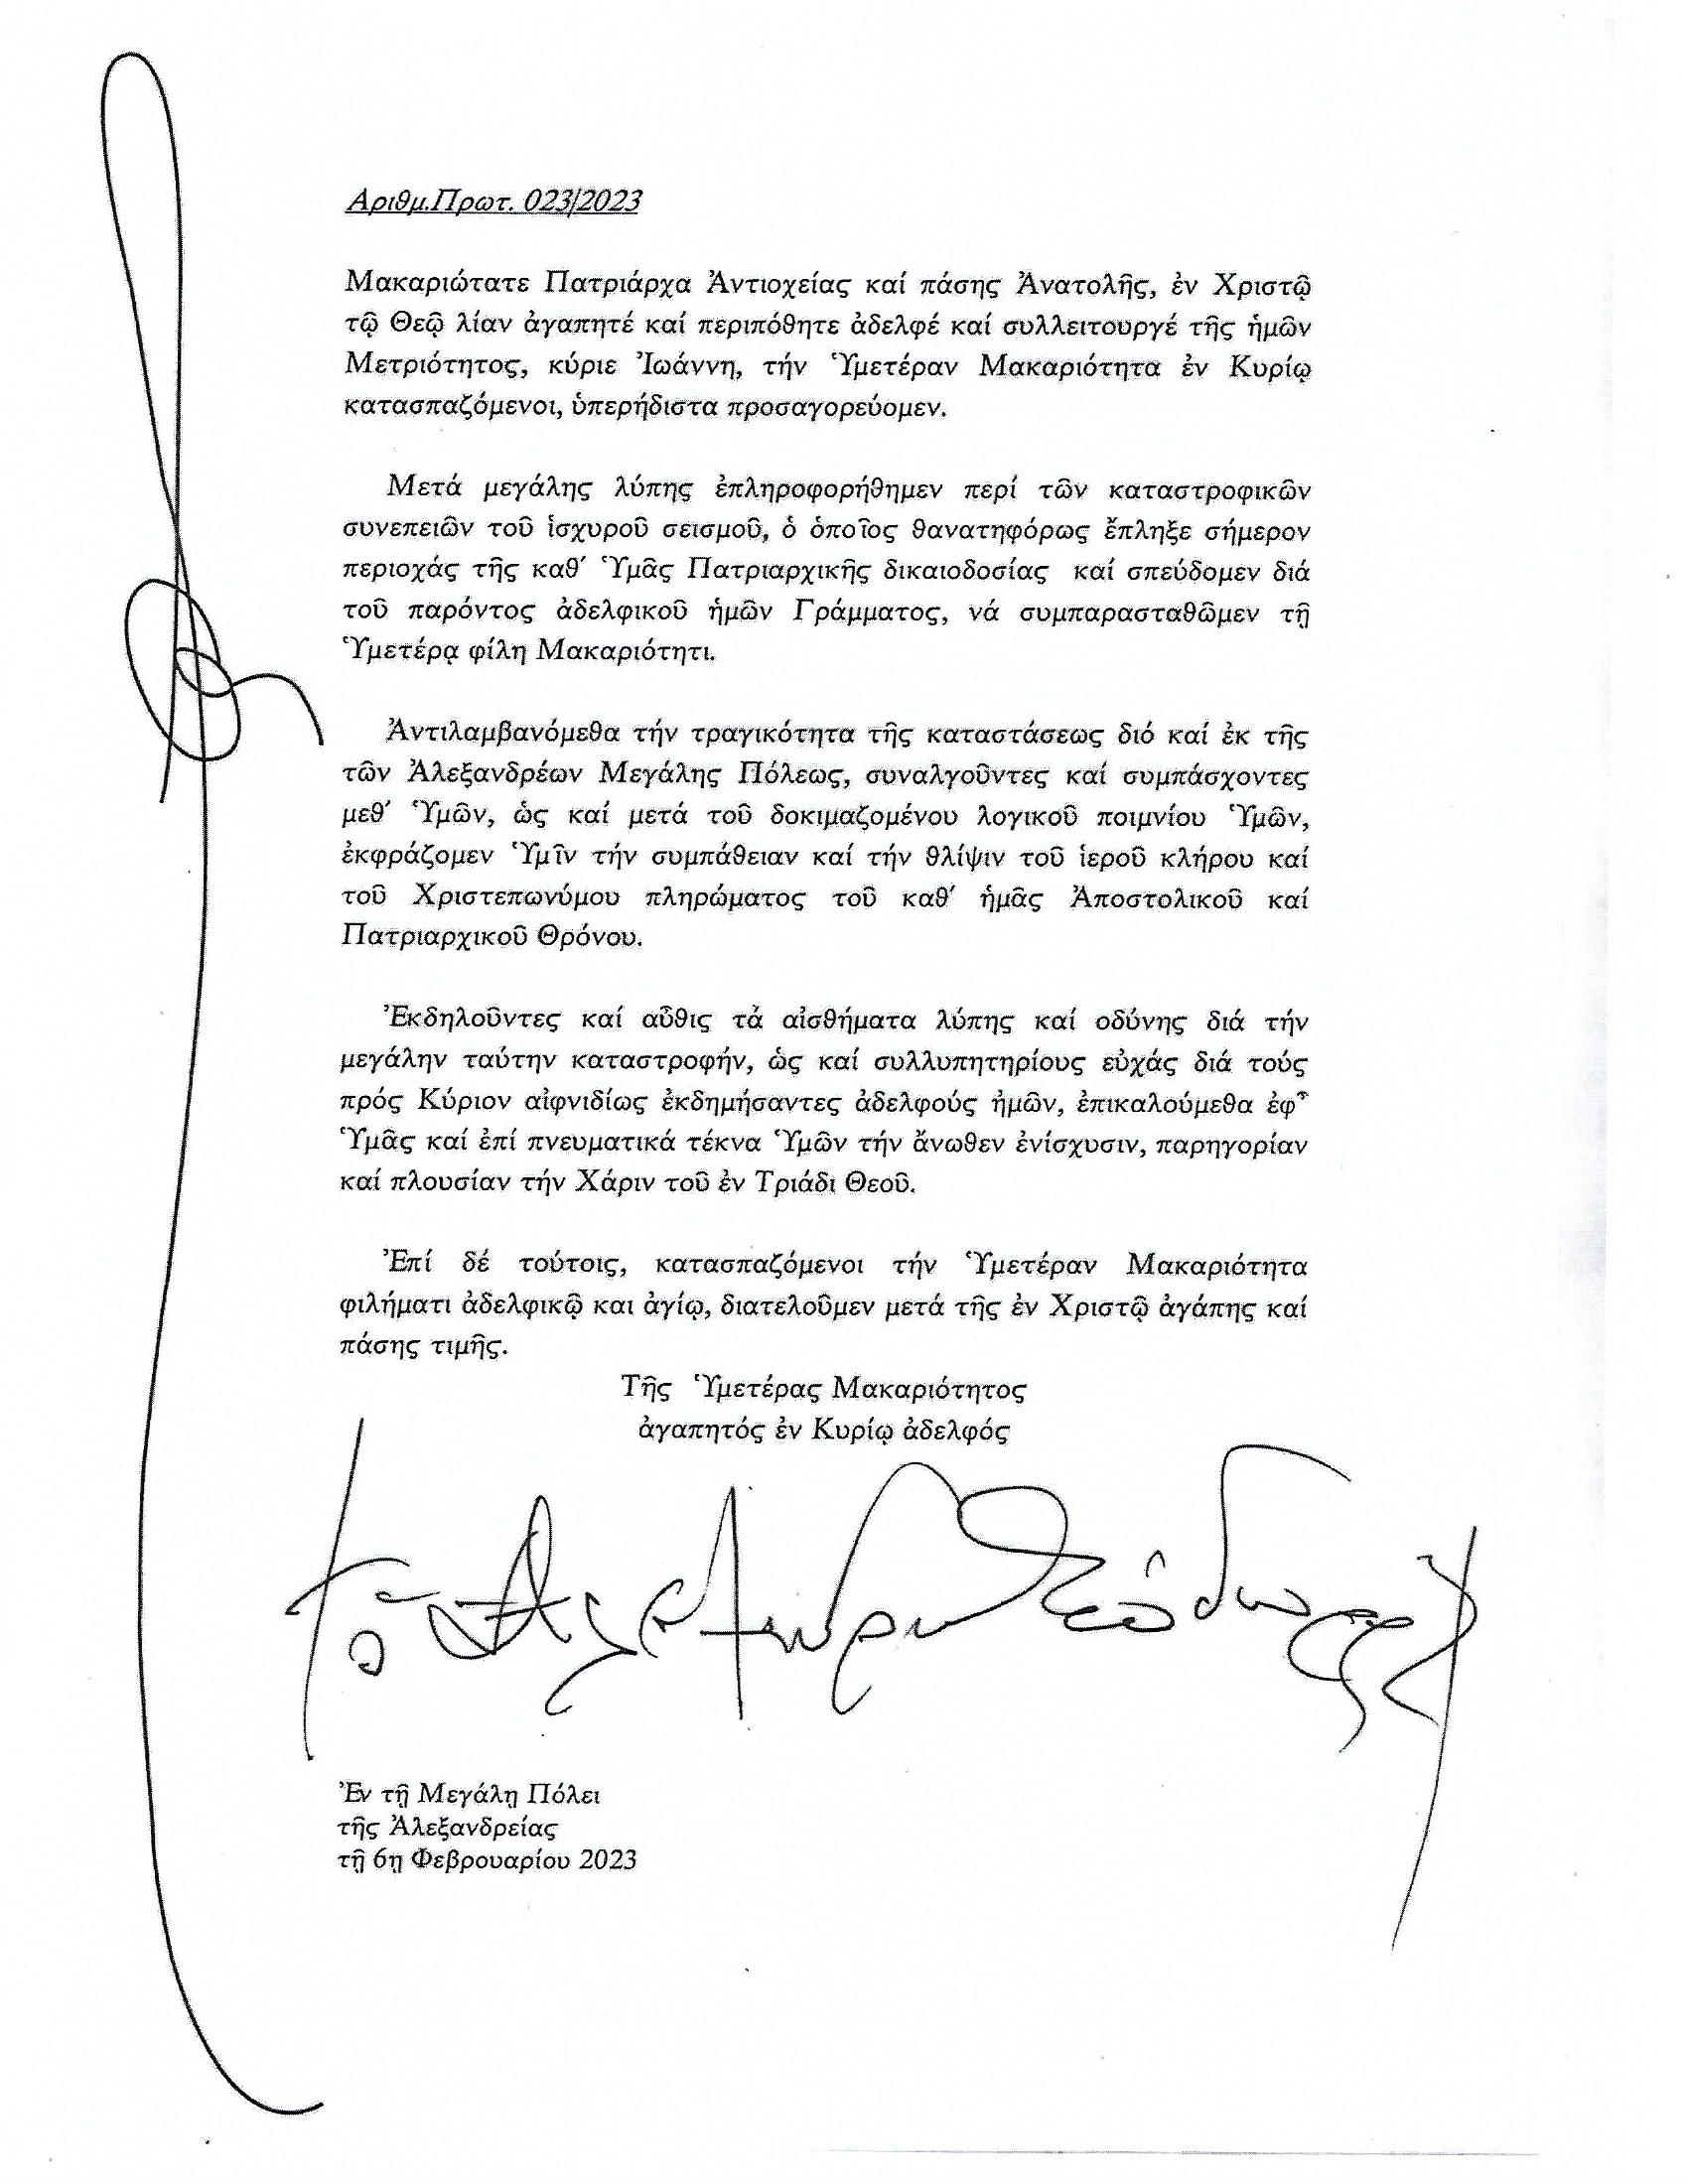 Αριθμ.Πρωτ. 023/2023
Μακαριώτατε Πατριάρχα Ἀντιοχείας καί πάσης Ἀνατολῆς, ἐν Χριστῷ
τῷ Θεῷ λίαν ἀγαπητέ καί περιπόθητε ἀδελφέ καί συλλειτουργέ τῆς ἡμῶν
Μετριότητος, κύριε Ἰωάννη, τήν Ὑμετέραν Μακαριότητα ἐν Κυρίῳ
κατασπαζόμενοι, ὑπερήδιστα προσαγορεύομεν.
Μετά μεγάλης λύπης ἐπληροφορήθημεν περί τῶν καταστροφικῶν
συνεπειῶν τοῦ ἰσχυροῦ σεισμοῦ, ὁ ὁποῖος θανατηφόρως ἔπληξε σήμερον
περιοχάς τῆς καθ’ Ὑμᾶς Πατριαρχικῆς δικαιοδοσίας καί σπεύδομεν διά
τοῦ παρόντος ἀδελφικοῦ ἡμῶν Γράμματος, νά συμπαρασταθῶμεν τῇ
Ὑμετέρᾳ φίλη Μακαριότητι.
Ἀντιλαμβανόμεθα τήν τραγικότητα τῆς καταστάσεως διό καί ἐκ τῆς
τῶν Ἀλεξανδρέων Μεγάλης Πόλεως, συναλγοῦντες καί συμπάσχοντες
μεθ’ Ὑμῶν, ὡς καί μετά τοῦ δοκιμαζομένου λογικοῦ ποιμνίου Ὑμῶν,
ἐκφράζομεν Ὑμῖν τήν συμπάθειαν καί τήν θλίψιν τοῦ ἱεροῦ κλήρου καί
τοῦ Χριστεπωνύμου πληρώματος τοῦ καθ’ ἡμᾶς Ἀποστολικοῦ καί
Πατριαρχικοῦ Θρόνου.
Ἐκδηλοῦντες καί αὖθις τἀ αἰσθήματα λύπης καί οδύνης διά τήν
μεγάλην ταύτην καταστροφήν, ὡς καί συλλυπητηρίους εὐχάς διά τούς
πρός Κύριον αἰφνιδίως ἐκδημήσαντες ἀδελφούς ἡμῶν, ἐπικαλούμεθα ἐφ᾽
Ὑμᾶς καί ἐπί πνευματικά τέκνα Ὑμῶν τήν ἄνωθεν ἐνίσχυσιν, παρηγορίαν
καί πλουσίαν τήν Χάριν τοῦ ἐν Τριάδι Θεοῦ.
Ἐπί δέ τούτοις, κατασπαζόμενοι τήν Ὑμετέραν Μακαριότητα
φιλήματι ἀδελφικῷ και ἁγίῳ, διατελοῦμεν μετά τῆς ἐν Χριστῷ ἀγάπης καί
πάσης τιμῆς.
Τῆς Ὑμετέρας Μακαριότητος
ἀγαπητός ἐν Κυρίῳ ἀδελφός
Ἐν τῇ Μεγάλῃ Πόλει
τῆς Ἀλεξανδρείας
τῇ 6ῃ Φεβρουαρίου 2023